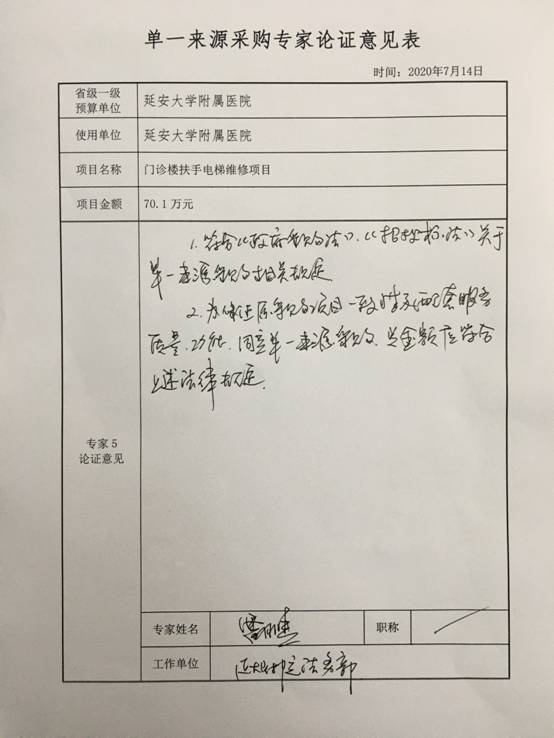 单一来源采购专家论证意见表
时间：2020年7月14日
省级一级
预算单位
延安大学附属医院
使用单位
延安大学附属医院
项目名称
门诊楼扶手电梯维修项目
项目金额
70.1 万元
1.符合《政府采购法》、《招投标法》关于
单一来源采购相关规定
2.为保证原采购项目一致性及配套服务
质量、功能、同意单一来源采购、其金额应符合
上述法律规定.
专家 5
论证意见
专家姓名
职称
工作单位
法务部